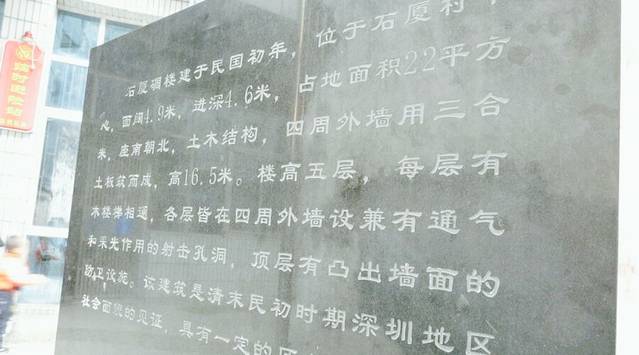 临时避险站
石厦碉楼建于民国初年，位于石厦村中
心，面阔4.9米，进深4.6米，占地面积22平方
米，座南朝北，土木结构，四周外墙用三合
土板筑而成，高16.5米。楼高五层，每层有
木楼梯相通，各层皆在四周外墙设兼有通气
和采光作用的射击孔洞，顶层有凸出墙面的
防卫设施。该建筑是清末民初时期深圳地区
社会面貌的见证，具有一定的